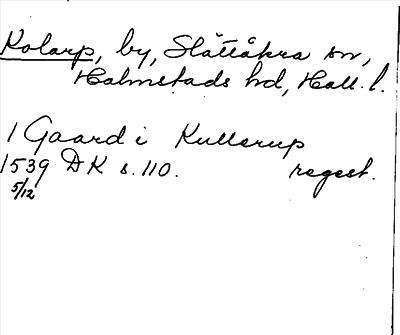 Kolarp, by, Slättåkra sn,
Halmstads hd, Hall. l.
1 Gaard i Kullerup
1539 DK s. 110. regest.
5/12